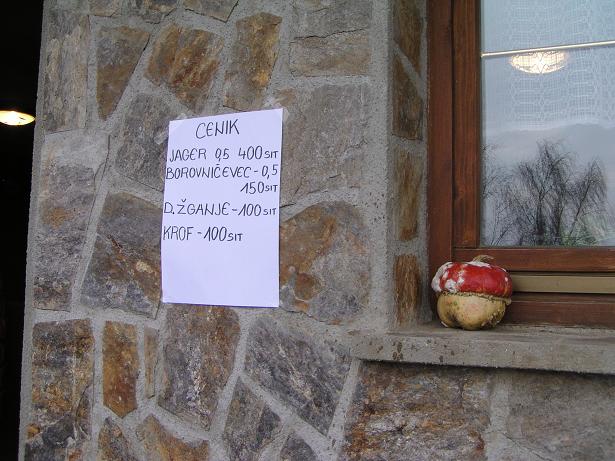 CENIK
JAGER 0,5 400 SIT
BOROVNIČEVEC - 0,5
150 SIT
D. ŽGANJE - 100 SIT
KROF - 100 SIT